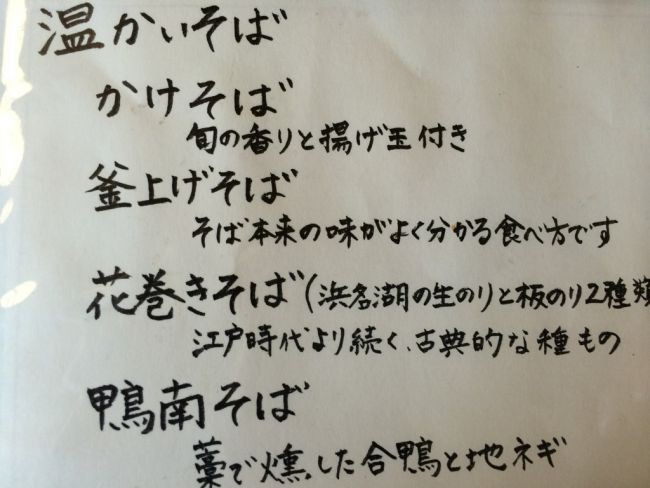 温かいそば
かけそば
旬の香りと揚げ玉付き
釜上げそば
そば本来の味がよく分かる食べ方です
花巻きそば(浜名湖の生のりと板のり2種類
江戸時代より続く、古典的な種もの
鴨南そば
藁で燻した合鴨と地ネギ